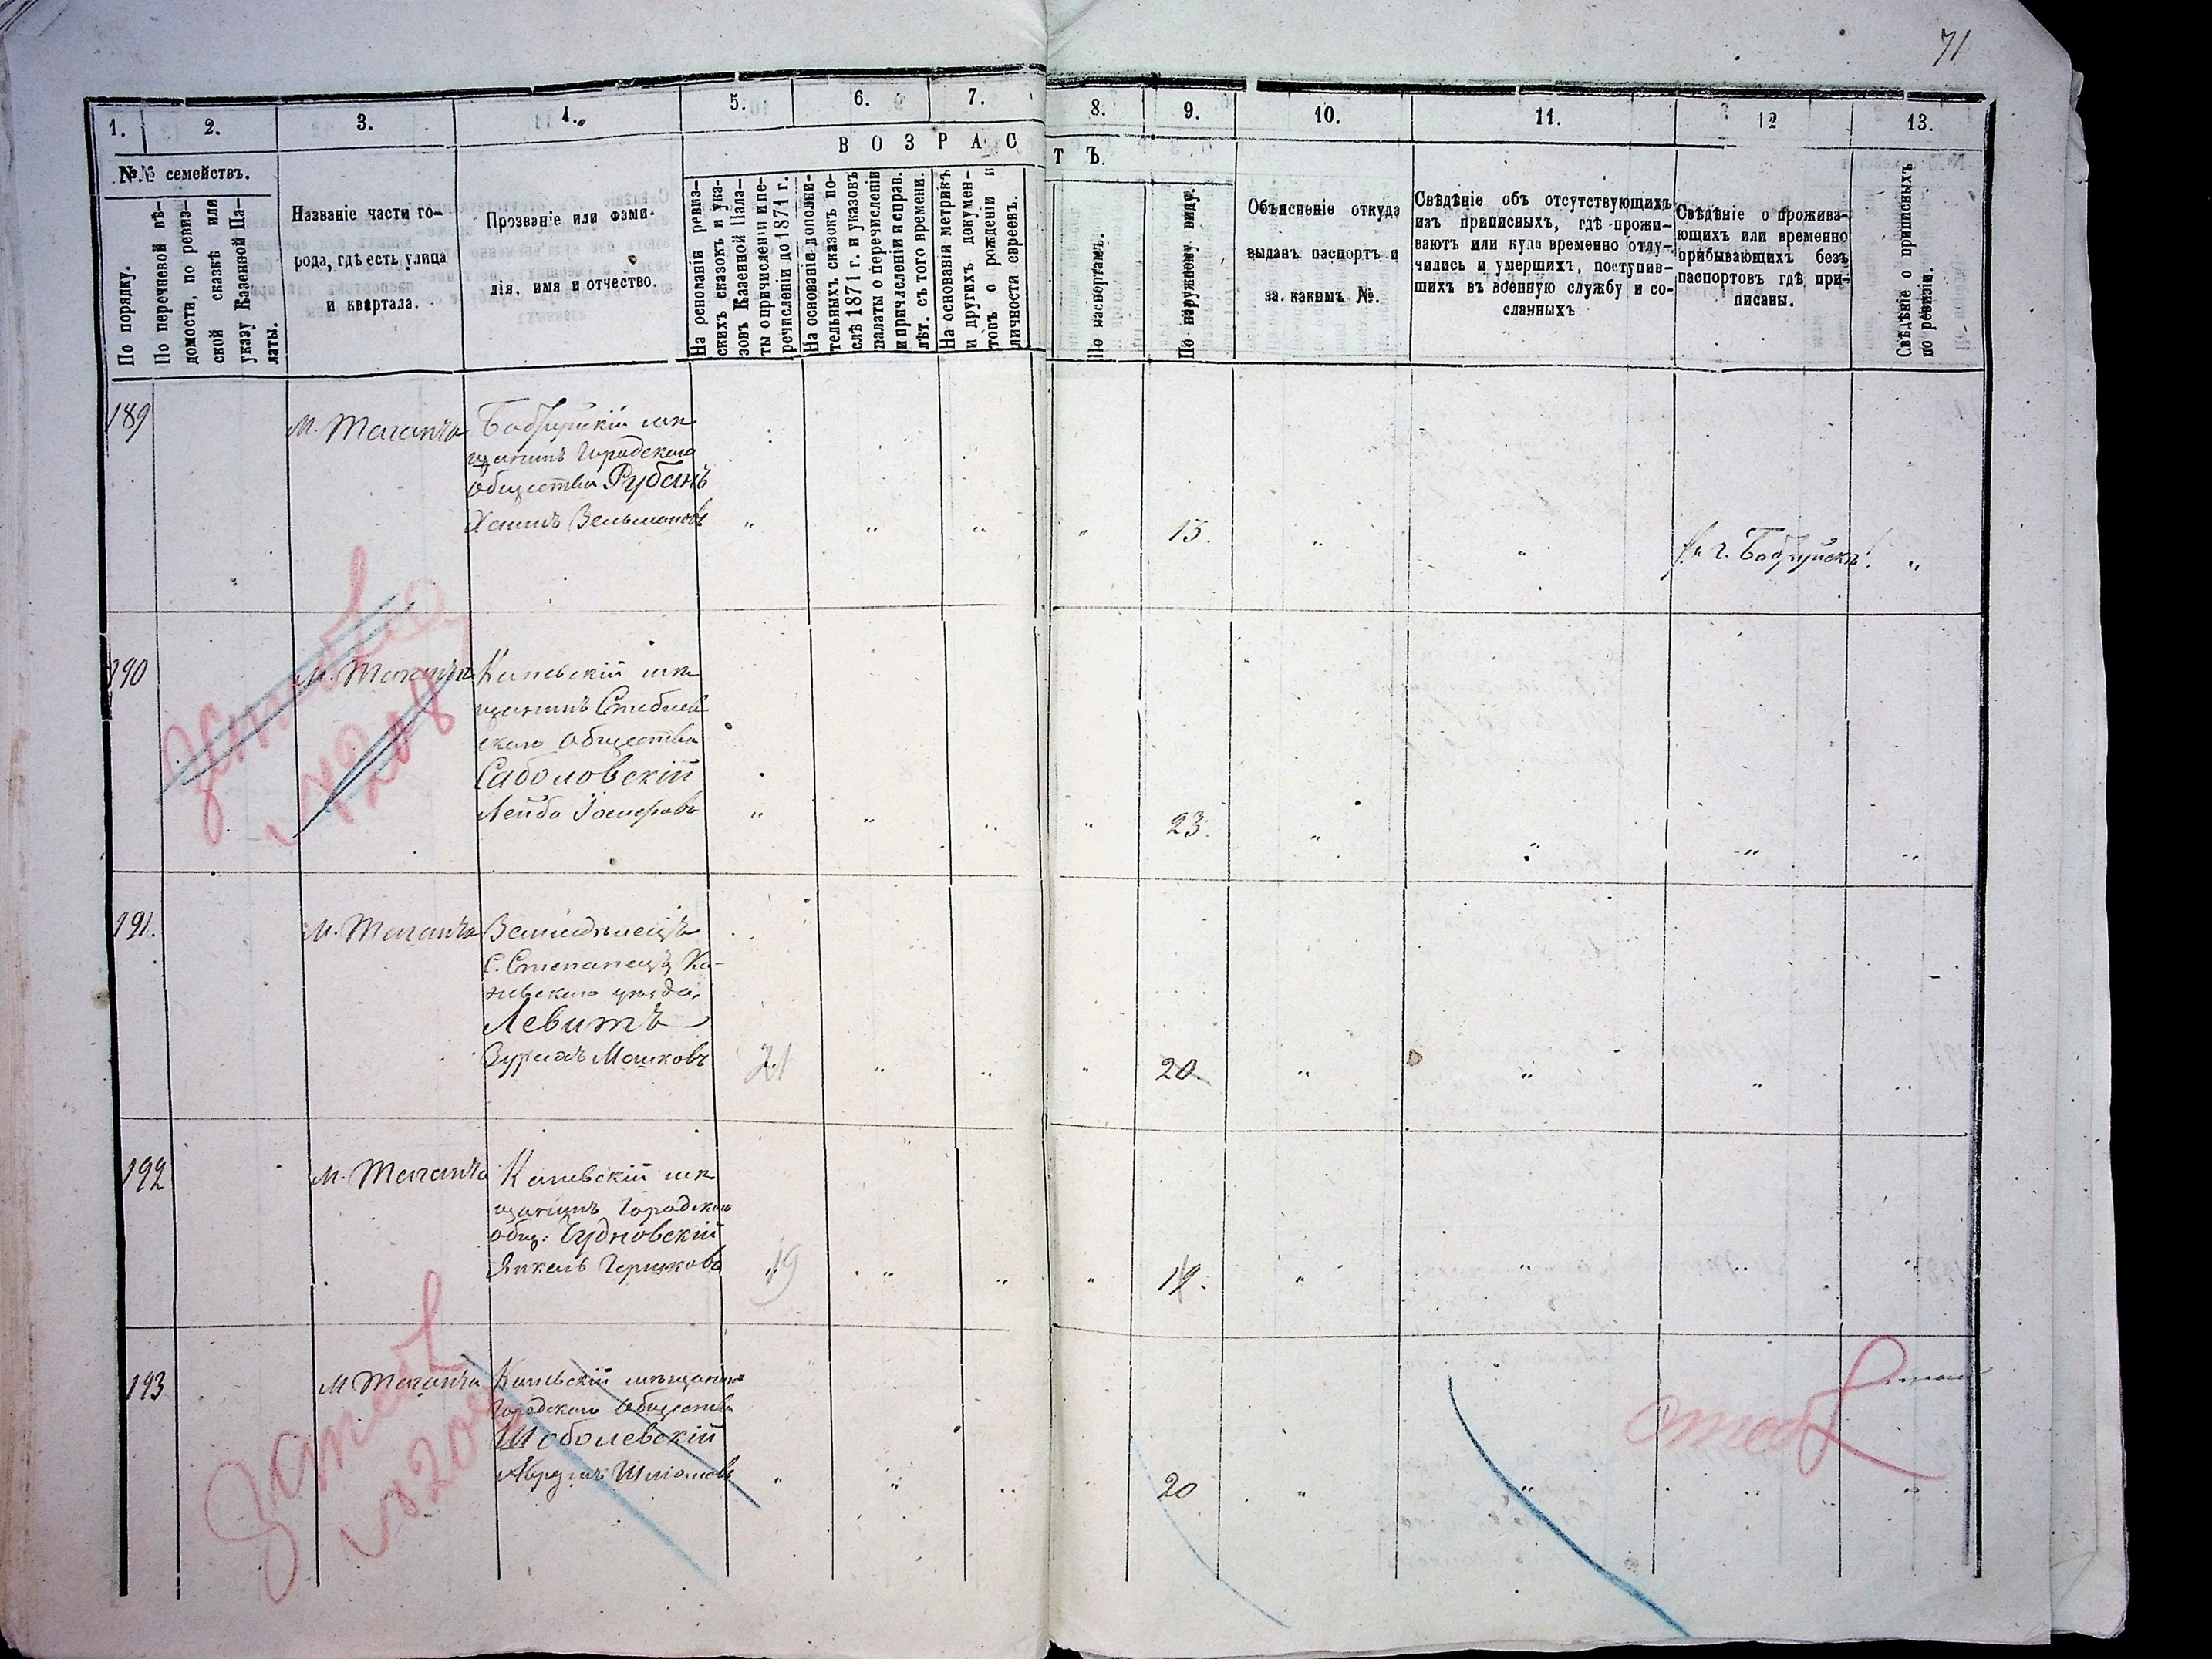 71
1. 2. 3. 4. 5. 6. 7. 8. 9. 10. 11. 12 13.
№№ семействъ.
ВОЗРАСТЪ.
По порядку.
По перечневой вѣ-
домости, по ревиз-
ской сказкѣ или
указу Казенной Па-
латы.
Названіе части го-
рода, гдѣ есть улица
и квартала.
Прозваніе или фами-
лія, имя и отчество.
На основаніи ревиз-
скихъ сказокъ и ука-
зовъ Казенной Пала-
ты о причисленіи и пе-
речисленіи до 1871 г.
На основаніи дополни-
тельныхъ сказокъ по-
слѣ 1871 г. и указовъ
палаты о перечисленіи
и причисленіи и справ.
лѣт. съ того времени.
На основаніи метрикъ
и другихъ докумен-
товъ о рожденіи и
личности евреевъ.
По паспортамъ.
По наружному виду.
Объясненіе откуда
выданъ паспортъ и
за какимъ №.
Свѣдѣніе объ отсутствующихъ
изъ приписныхъ, гдѣ прожи-
ваютъ или куда временно отлу-
чились и умершихъ, поступив-
шихъ въ военную службу и со-
сланныхъ
Свѣдѣніе о прожива-
ющихъ или временно
прибывающихъ безъ
паспортовъ гдѣ при-
писаны.
Свѣдѣніе о приписныхъ
по ревизіи.
189 М. Таганча Бобруйскій мѣ-
щанинъ Городского
общества Рубанъ
Хаимъ Зельмановъ " " " " 13. " " г. Бобруйскъ. "
190 М. Таганча Каневскій мѣ-
щанинъ Стеблев-
скаго общества
Саболовскій
Лейба Іосиповъ " " " " 23. " " " "
191. М. Таганча Земледѣлецъ
С. Степанецъ Ка-
невскаго уѣзда,
Левитъ
Зурахъ Мошковъ 21 " " " 20. " " " "
192 М. Таганча Каневскій мѣ-
щанинъ Городского
общ: Чудновскій
Янкель Гершковъ 19 " " " 19. " " " "
193 М Таганча Каневскій мѣщанинъ
Городского общества
Шоболевскій
Аврумъ Шліомовъ " " " " 20 " " " "